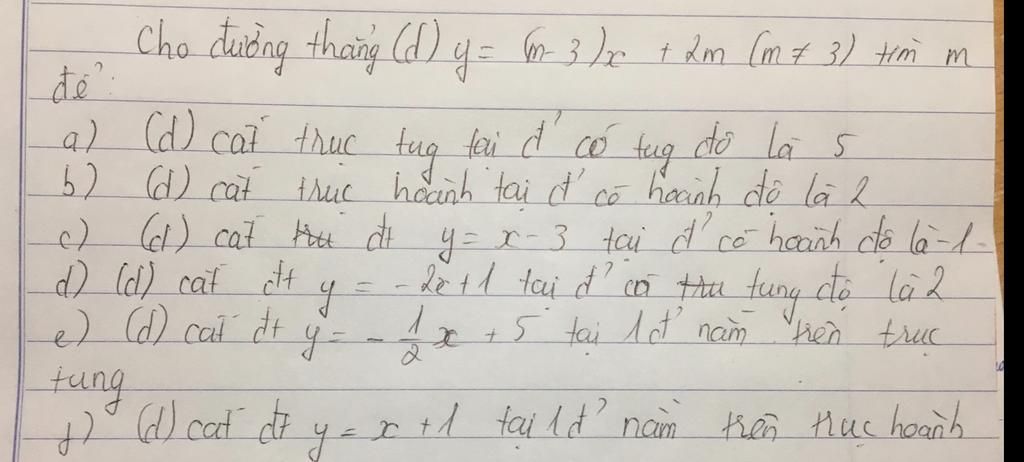 Cho đường thẳng (d) y = (m-3)x + 2m (m ≠ 3) tìm m
để:
a) (d) cắt trục tug tại đ' có tug độ là 5
b) (d) cắt trục hoành tại đ' có hoành độ là 2
c) (d) cắt đt y = x - 3 tại đ' có hoành độ là -1
d) (d) cắt đt y = -2x + 1 tại đ' có tung độ là 2
e) (d) cắt đt y = -1/2 x + 5 tại 1 đ' nằm trên trục
tung
f) (d) cắt đt y = x + 1 tại 1 đ' nằm trên trục hoành